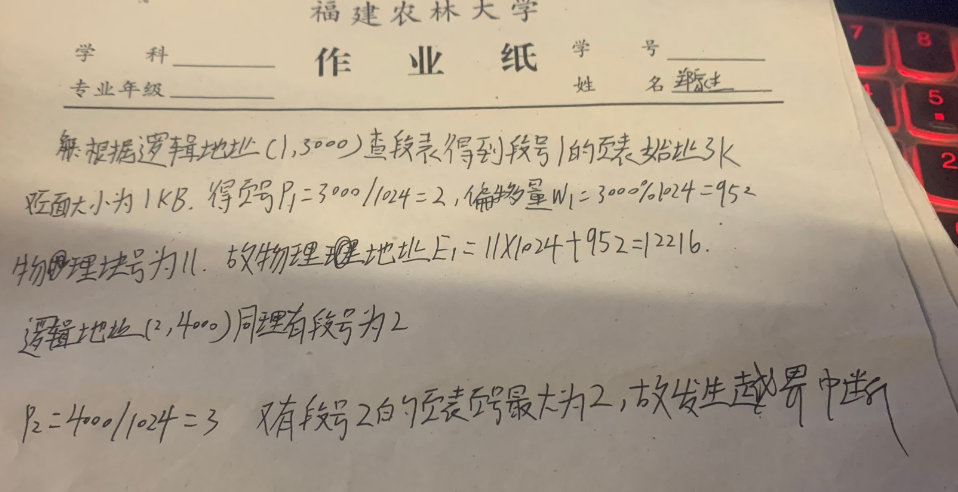 福建农林大学
学 科
作 业 纸
学 号
专业年级
姓 名
解:根据逻辑地址(1,3000)查段表得到段号1的页表始址3K
页面大小为1KB.得页号P₁=3000/1024=2,偏移量W₁=3000%1024=952
物理块号为11.故物理地址E₁=11×1024+952=12216.
逻辑地址(2,4000)同理有段号为2
P₂=4000/1024=3 又有段号2的页表页号最大为2,故发生越界中断
7
8
5
2